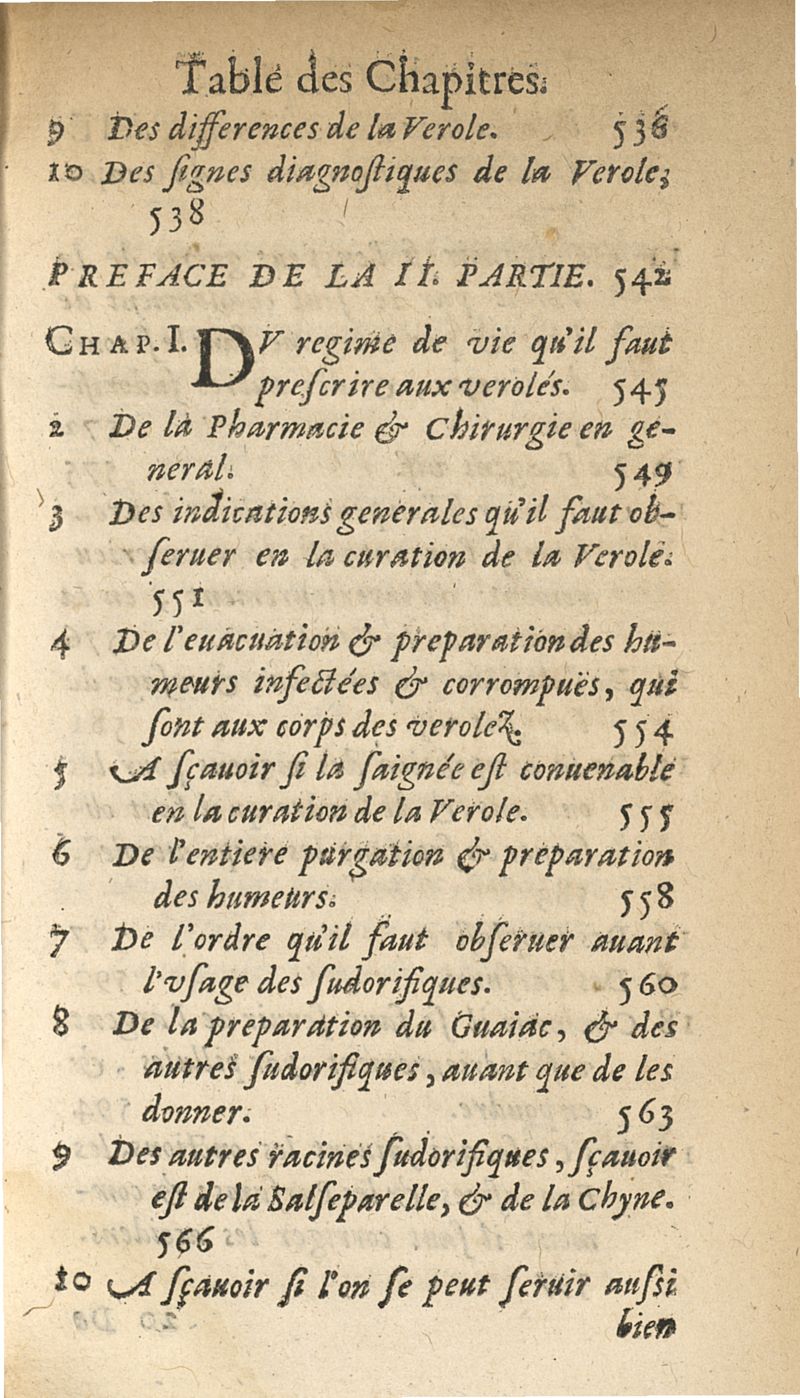 Table des Chapitres.
9 Des differences de la Verole. 536
10 Des ſignes diagnoſtiques de la Verole;
538
PREFACE DE LA II. PARTIE. 542
CHAP. I. DV regime de vie qu'il faut
preſcrire aux verolés. 545
2 De la Pharmacie & Chirurgie en ge-
neral. 549
3 Des indications generales qu'il faut ob-
ſeruer en la curation de la Verole.
551
4 De l'euacuation & preparation des hu-
meurs infectées & corrompuës, qui
ſont aux corps des verolez. 554
5 A ſçauoir ſi la ſaignée eſt conuenable
en la curation de la Verole. 555
6 De l'entiere purgation & preparation
des humeurs. 558
7 De l'ordre qu'il faut obſeruer auant
l'vſage des ſudorifiques. 560
8 De la preparation du Guaiac, & des
autres ſudorifiques, auant que de les
donner. 563
9 Des autres racines ſudorifiques, ſçauoir
eſt de la Salſeparelle, & de la Chyne.
566
10 A ſçauoir ſi l'on ſe peut ſeruir auſsi
bien